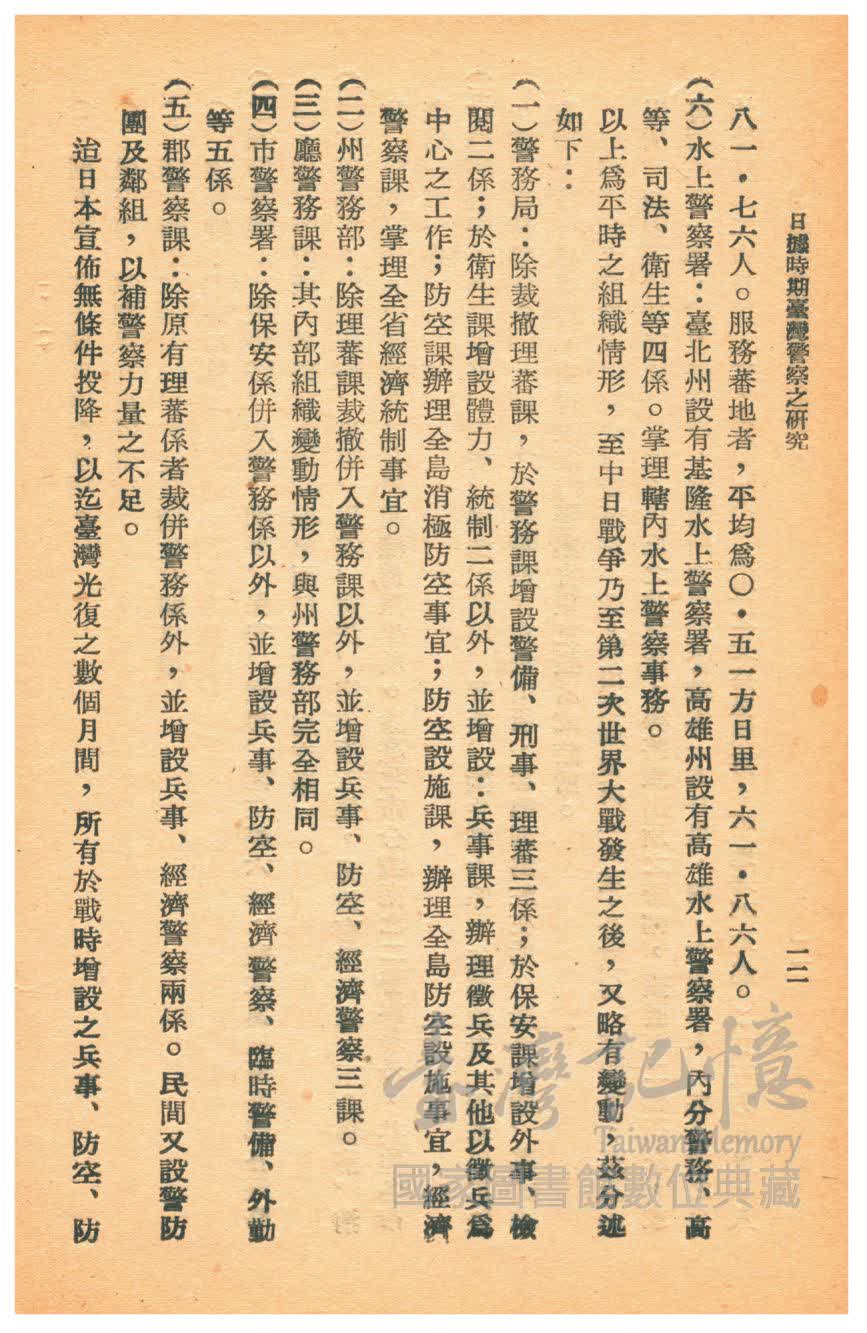 日據時期臺灣警察之研究
一二
八一・七六人。服務蕃地者，平均爲〇・五一方日里，六一・八六人。
(六)水上警察署：臺北州設有基隆水上警察署，高雄州設有高雄水上警察署，內分警務、高
等、司法、衛生等四係。掌理轄內水上警察事務。
以上爲平時之組織情形，至中日戰爭乃至第二次世界大戰發生之後，又略有變動，茲分述
如下：
(一)警務局：除裁撤理蕃課，於警務課增設警備、刑事、理蕃三係；於保安課增設外事、檢
閱二係；於衛生課增設體力、統制二係以外，並增設：兵事課，辦理徵兵及其他以徵兵爲
中心之工作；防空課辦理全島消極防空事宜；防空設施課，辦理全島防空設施事宜，經濟
警察課，掌理全省經濟統制事宜。
(二)州警務部：除理蕃課裁撤併入警務課以外，並增設兵事、防空、經濟警察三課。
(三)廳警務課：其內部組織變動情形，與州警務部完全相同。
(四)市警察署：除保安係併入警務係以外，並增設兵事、防空、經濟警察、臨時警備、外勤
等五係。
(五)郡警察課：除原有理蕃係者裁併警務係外，並增設兵事、經濟警察兩係。民間又設警防
團及鄰組，以補警察力量之不足。
迨日本宣佈無條件投降，以迄臺灣光復之數個月間，所有於戰時增設之兵事、防空、防
臺灣記憶
Taiwan Memory
國家圖書館數位典藏